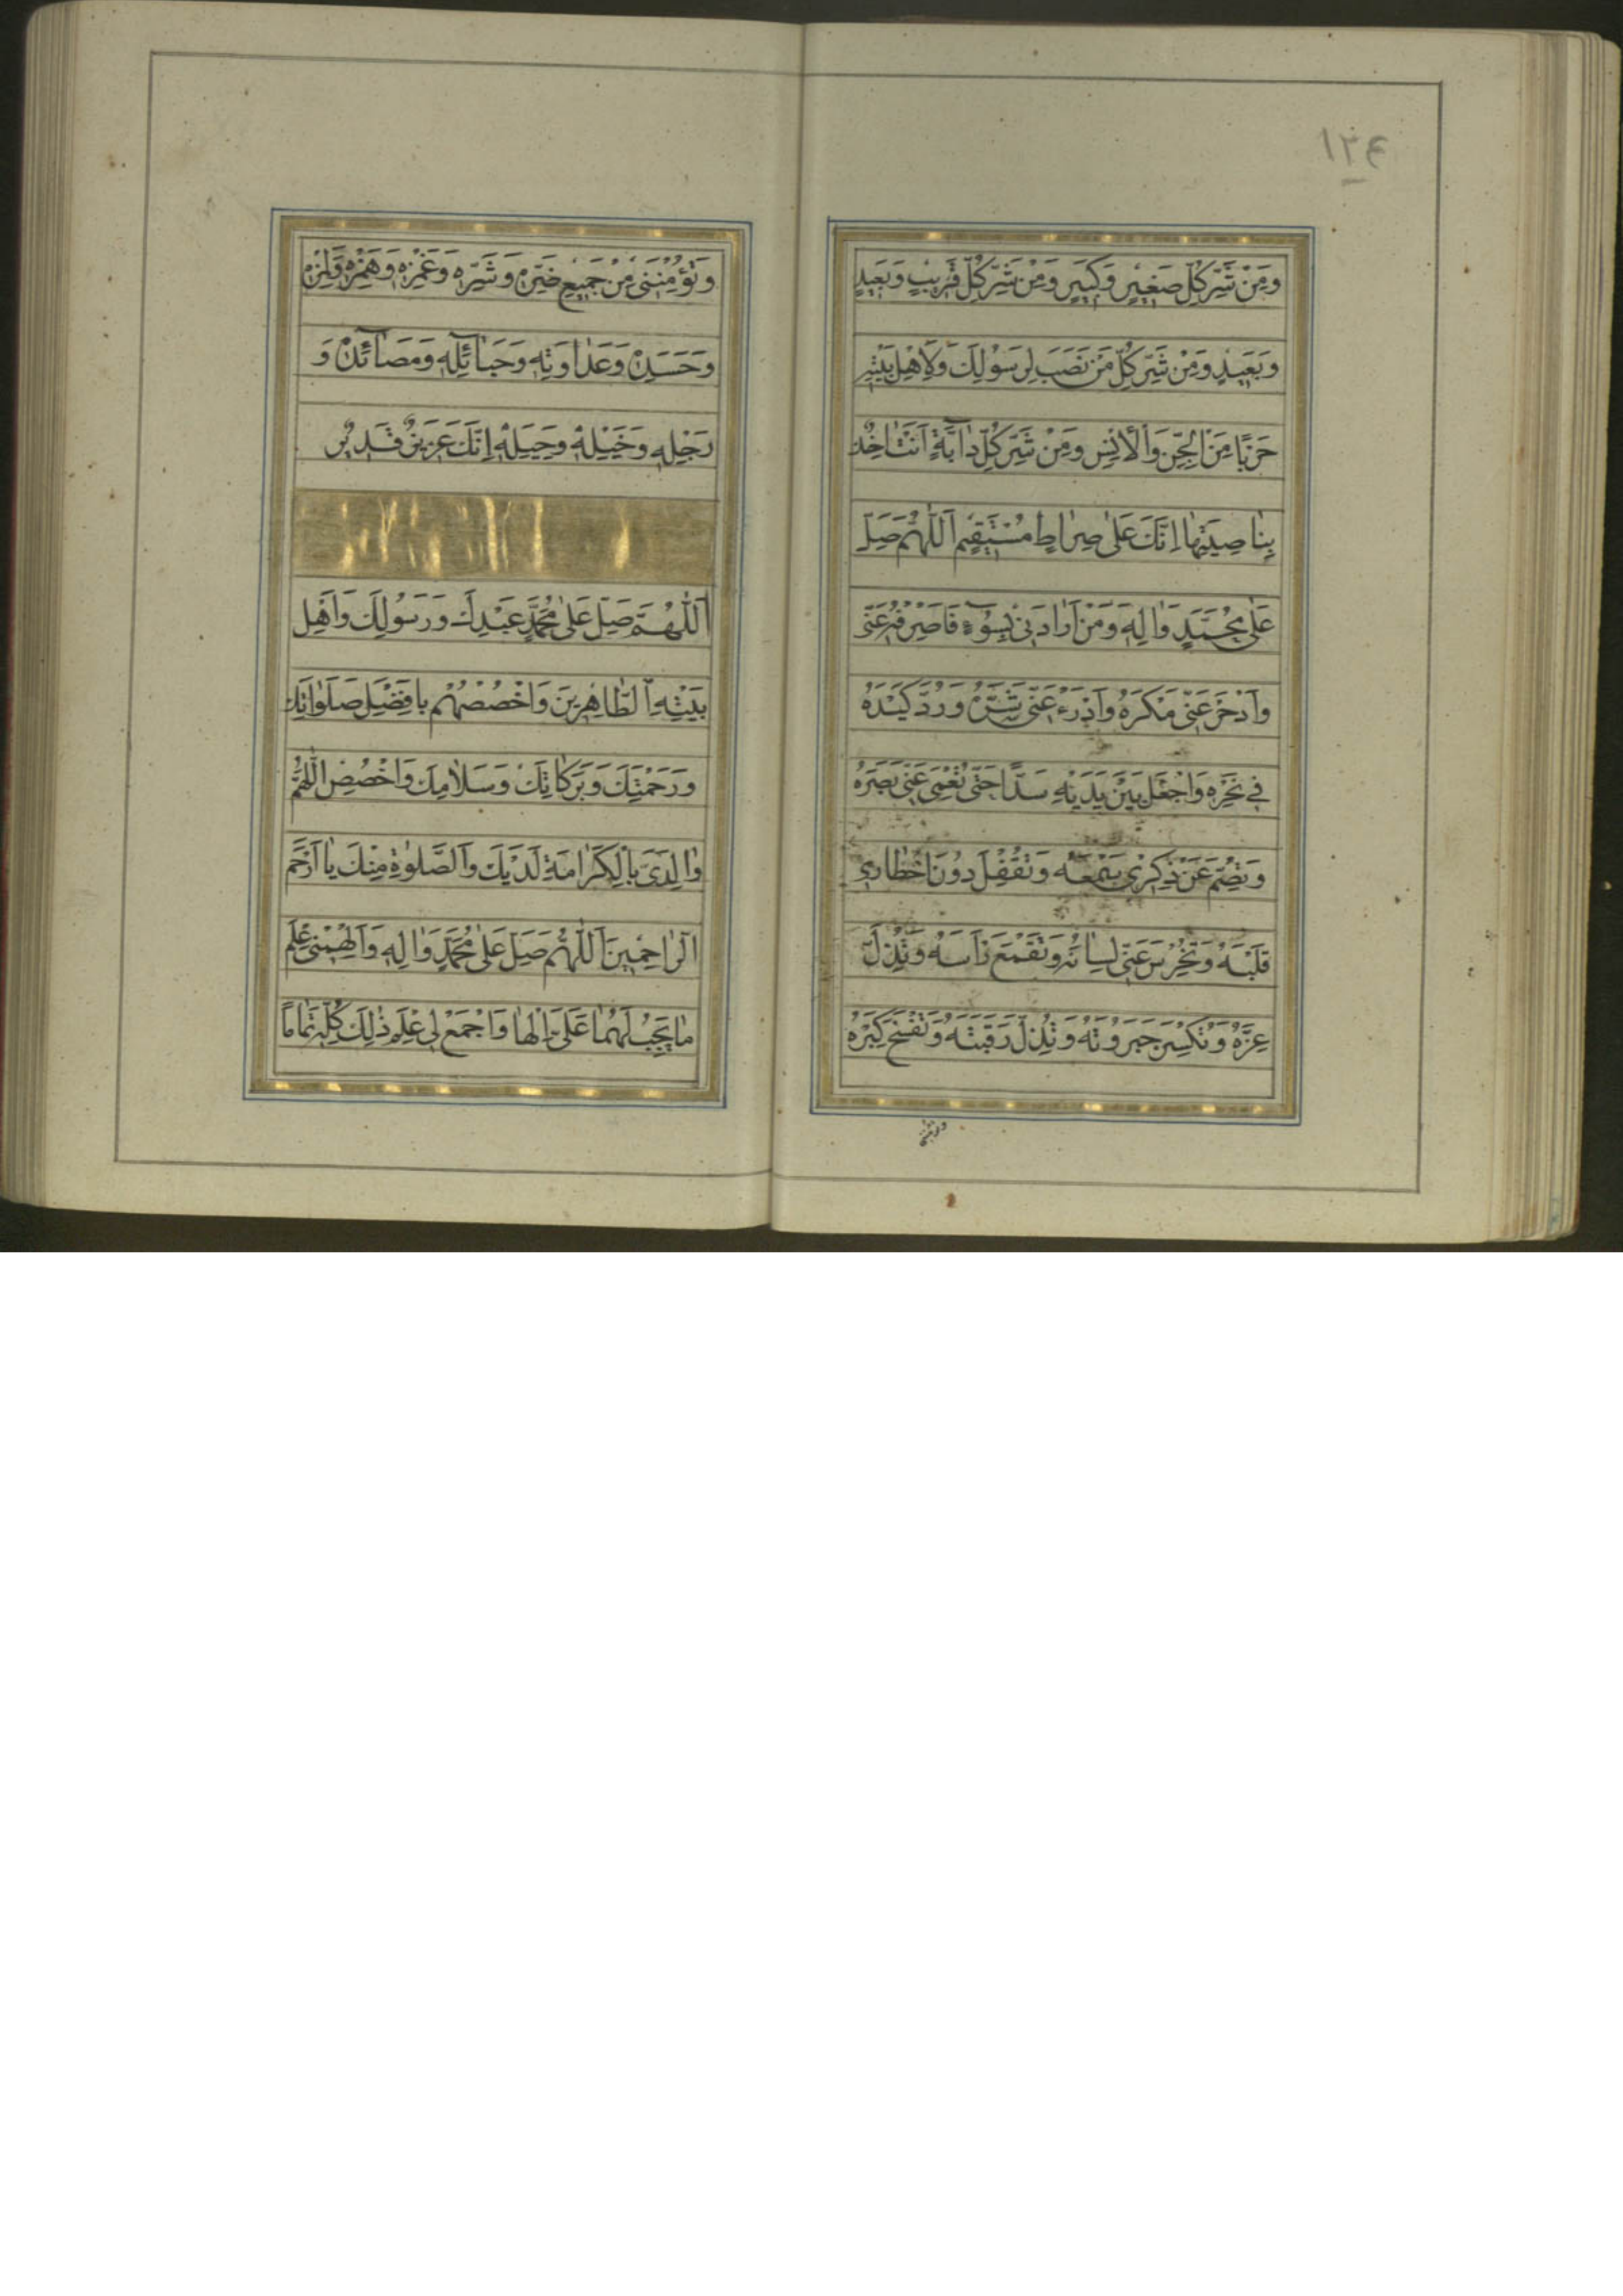 ١٣٤
وَمِنْ شَرِّ كُلِّ صَغٖيرٍ وَكَبٖيرٍ وَمِنْ شَرِّ كُلِّ قَرٖيبٍ وَبَعٖيدٍ
وَبَعٖيدٍ وَمِنْ شَرِّ كُلِّ مَنْ نَصَبَ لِرَسُولِكَ وَلِاَهْلِ بَيْتِهٖ
حَرْبًا مِنَ الْجِنِّ وَالْاِنْسِ وَمِنْ شَرِّ كُلِّ دٰابَّةٍ اَنْتَ اٰخِذٌ
بِنٰاصِيَتِهٰا اِنَّكَ عَلىٰ صِرٰاطٍ مُسْتَقٖيمٍ اَللّٰهُمَّ صَلِّ
عَلىٰ مُحَمَّدٍ وَاٰلِهٖ وَمَنْ اَرٰادَنٖي بِسُوٓءٍ فَاصْرِفْهُ عَنّٖي
وَادْحَرْ عَنّٖي مَكْرَهُ وَادْرَءْ عَنّٖي شَرَّهُ وَرُدَّ كَيْدَهُ
فٖي نَحْرِهٖ وَاجْعَلْ بَيْنَ يَدَيْهِ سَدًّا حَتّٰى تُعْمِيَ عَنّٖي بَصَرَهُ
وَتُصِمَّ عَنْ ذِكْرٖي سَمْعَهُ وَتُقْفِلَ دُونَ اخْطٰارٖي
قَلْبَهُ وَتُخْرِسَ عَنّٖي لِسٰانَهُ وَتَقْمَعَ رَاْسَهُ وَتُذِلَّ
عِزَّهُ وَتَكْسِرَ جَبَرُوتَهُ وَتُذِلَّ رَقَبَتَهُ وَتَفْسَخَ كِبْرَهُ
وَتُؤْمِنَنٖي
وَتُؤْمِنَنٖي مِنْ جَمٖيعِ ضَرِّهٖ وَشَرِّهٖ وَغَمْزِهٖ وَهَمْزِهٖ وَلَمْزِهٖ
وَحَسَدِهٖ وَعَدٰاوَتِهٖ وَحَبٰائِلِهٖ وَمَصٰائِدِهٖ وَ
رَجْلِهٖ وَخَيْلِهٖ وَحِيَلِهٖ اِنَّكَ عَزٖيزٌ قَدٖيرٌ
اَللّٰهُمَّ صَلِّ عَلىٰ مُحَمَّدٍ عَبْدِكَ وَرَسُولِكَ وَاَهْلِ
بَيْتِهِ الطّٰاهِرٖينَ وَاخْصُصْهُمْ بِاَفْضَلِ صَلَوٰاتِكَ
وَرَحْمَتِكَ وَبَرَكٰاتِكَ وَسَلٰامِكَ وَاخْصُصِ اللّٰهُمَّ
وٰالِدَيَّ بِالْكَرٰامَةِ لَدَيْكَ وَالصَّلوٰةِ مِنْكَ يٰا اَرْحَمَ
الرّٰاحِمٖينَ اَللّٰهُمَّ صَلِّ عَلىٰ مُحَمَّدٍ وَاٰلِهٖ وَاَلْهِمْنٖي عِلْمَ
مٰا يَجِبُ لَهُمٰا عَلَيَّ اِلْهٰامًا وَاجْمَعْ لٖي عِلْمَ ذٰلِكَ كُلِّهٖ تَمٰامًا